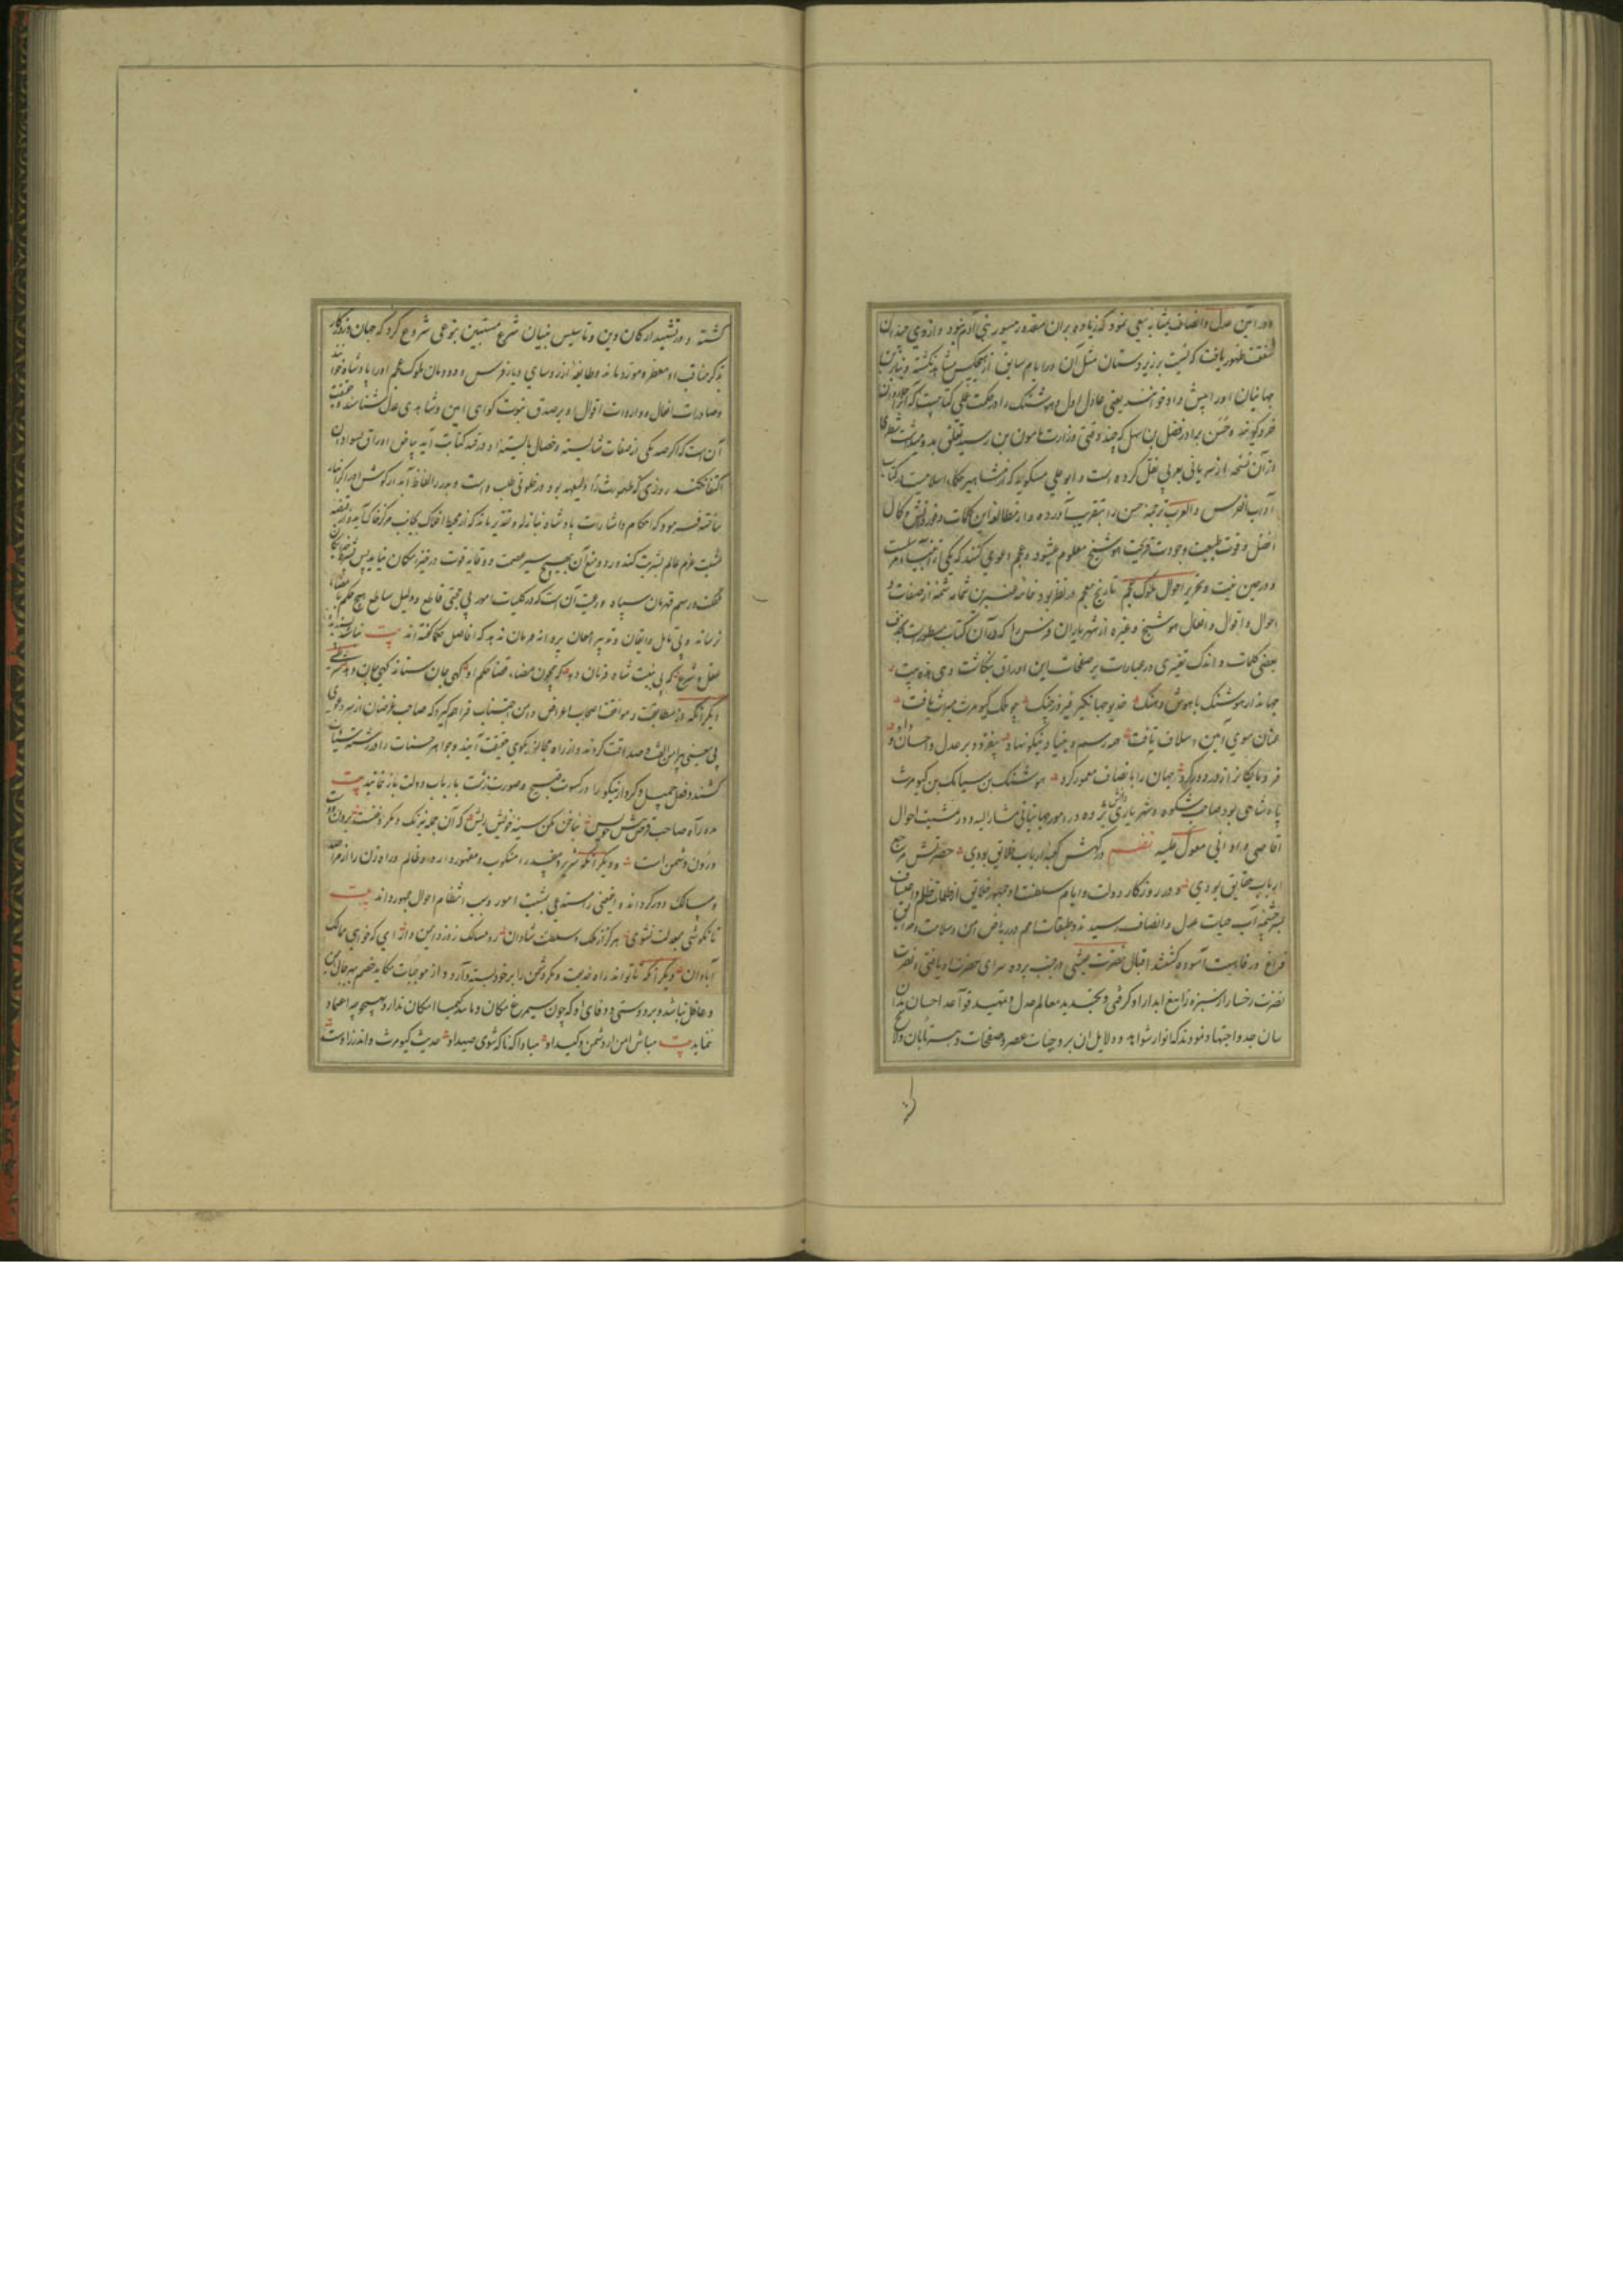 و در آیین عدل و انصاف بمثابه سعی نمود که زیاده بران مقدور و میسور بنی آدم نبود و از وی چندان
شفقت ظهور یافت که نسبت بزیردستان مثل آن در ایام سابق از هیچکس مشاهد نگشته و بنابرین
جهانیان اورا پیش داد خواندند یعنی عادل اول و هوشنگ را در حکمت عملی کتابیست که آنرا جاودان
خرد گویند و حسن برادر فضل بن سهل که چند وقتی وزارت مامون بن رشید تعلق بدو میداشت شطری
از آن نسخه را از سریانی بعربی نقل کرده است و ابو علی مسکویه که از مشاهیر حکماء اسلامیست در کتاب
آداب الفرس و العرب ترجمه حسن را بتقریب آورده و از مطالعه این کلمات وفور دانش و کمال
فضل و قوت طبیعت و جودت قریحت هوشنج معلوم میشود و عجم دعوی کنند که یکی از انبیاء مرسل است
و در حین تحریر احوال ملوک عجم تاریخ معجم در نظر بود خامه شمه از صفات و
احوال و اقوال و افعال هوشنج و غیره از شهریاران فرس را که در آن کتاب مسطورست بحذف
بعضی کلمات و اندک تغییری در عبارات بر صفحات این اوراق نگاشت و هی هذه بیت
جهاندار هوشنگ با هوش و هنگ خدیو جهانگیر فیروز جنگ چو ملک کیومرث میراث یافت
عنان سوی آیین اسلاف تافت همه رسم و بنیاد نیکو نهاد بیفزود بر عدل و احسان و داد
جهان را بانصاف معمور کرد هوشنک بن سیامک بن کیومرث
پادشاهی بود صاحب شکوه و شهریاری دانش پژوه در امور جهانبانی مشار الیه و در مشیت احوال
اقاصی و ادانی معول علیه نظم درگهش کعبه ارباب خلایق بودی حضرتش مرجع
ارباب حقایق بودی و در روزگار دولت و ایام سلطنت او جمهور خلایق از ظلمات ظلم و اعتساف
بسرچشمه آب حیات عدل و انصاف رسیدند و طبقات امم در ریاض امن و سلامت
فراغ و رفاهیت آسوده گشتند اقبال نصرت
نضرت رخسار از سبزه تیغ آبدار او گرفتی و بتجدید معالم عدل و تمهید قواعد احسان بدان
سان جد و اجتهاد نمودند که انوار شواهد و دلایل ان بر وجنات عصر و صفحات دهر تابان و لایح
گشته و در تشیید ارکان دین و تاسیس بنیان شرع مستبین بنوعی شروع کرد که جهان و روزگار
بذکر مناقب او معطر و مورد ماند و طایفه از روسای دیار فرس و دودمان ملوک عجم اورا پادشاه خوانند
و صادرات افعال و واردات اقوال او بر صدق نبوت گواهی امین و شاهدی عدل شناسند و حقیقت
آن است که اگر صد یکی از صفات شایسته و خصال بایسته او در قید کتابت آید بیاض اوراق بسواد آن
اکتفا نکند روزی که طهمورث را که ولیعهد بود در خلوتی طلب داشت و بدرر الفاظ آبدار گوش اورا گرانبار
ساخته فرمود که احکام و اشارات پادشاه نیازل و تقدیر ماند که از محیط افلاک بجانب مرکز خاک آید
مشیت عزم عالم بشریت کند و رد و منع آن بهیچ سپر عصمت و وقایه قوت در حیز امکان نیاید پس
مملکت و رسم قهرمان سپاه و رعیت آن است که در کلیات امور بی حجتی قاطع و دلیل ساطع هیچ حکم بامضاء
نرساند و بی تامل و ایقان و تدبیر و امعان پروانه فرمان ندهد که افاضل حکما گفته اند بیت نباشد پسندیده
عقل و شرع که بی بینت شاه فرمان دهد که چون قضا حکم او گهی جان ستاند گهی جان دهد
دیگر آنکه از مطابقت و موافقت اصحاب اعراض و این اجتناب فراهم گیرد که صاحب غرضان از سر دعوی
بی معنی پیرامن الفت و صداقت گردند و از راه مجاز بکوی حقیقت آیند و جواهر حسنات را در رشته سیئات
کشند و فعل جمیل و کردار نیکو را در کسوت قبیح و صورت زشت بارباب دولت باز نمایند بیت
مده راه صاحب غرض پیش خویش بناخن مکن سینه خویش ریش که آن جمله نیرنگ و مکر و فنست برون دوست
و درون دشمن است و دیگر آنکه شریر و مفسد را منکوب و مقهور دارد و ظالم و راه زن را از مراصد
و مسالک دور گرداند و اغضی راستد بلی بشیت امور و سبب انتظام احوال جمهور داند بیت
تا نکوشی بمعدلت نشوی هرگز از ملک و سلطنت شادان ره و مسالک ز دزد ایمن دار ای که خواهی ممالک
آبادان دیگر آنکه تا تواند راه خدیعت و مکر دشمن را بر خود بسته دارد و از موجبات مکاید خصم بهر حالی
و غافل نباشد و بر دوستی و وفای او که چون سیمرغ مکان و مانند کیمیا امکان ندارد بهیچ وجه اعتماد
ننماید بیت مباش ایمن از دشمن و کید او مبادا که ناگه شوی صید او حدیث کیومرث و اندرز اوست